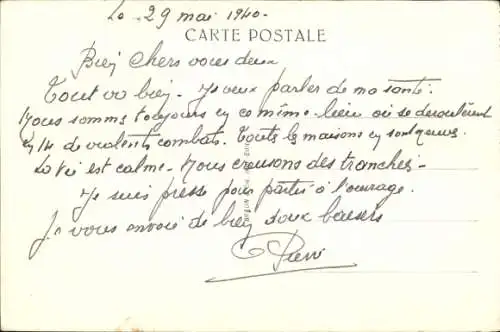 Le 29 mai 1940-
CARTE POSTALE
Bien Chers vous deux
Tout va bien - Je veux parler de ma santé.
Nous sommes toujours en ce même lieu où se déroulèrent
en 14 de violents combats. Toutes les maisons y sont neuves.
La vie est calme - Nous creusons des tranchées -
Je suis pressé pour partir à l'ouvrage.
Je vous envoie de bien doux baisers
Pierre